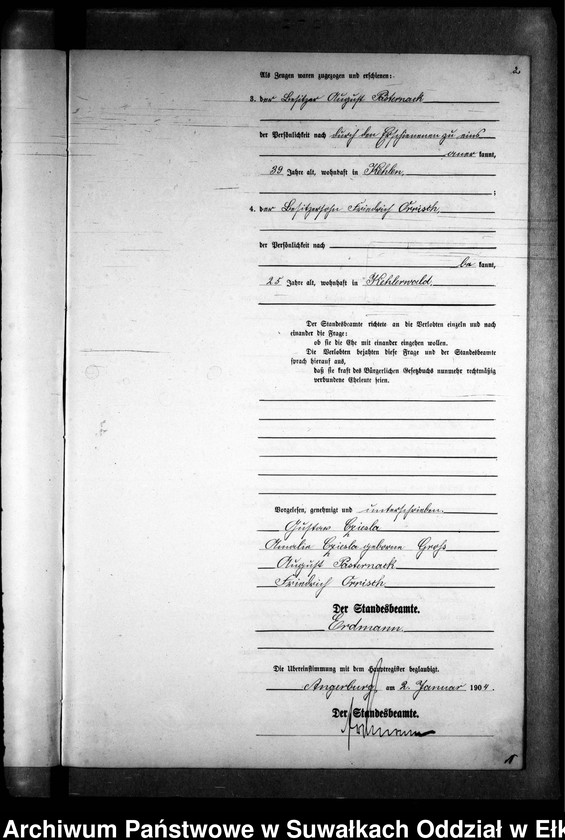 2
Als Zeugen waren zugezogen und erschienen:
3. der Besitzer August Pasternack
der Persönlichkeit nach durch den Erschienenen zu eins
aner kannt,
39 Jahre alt, wohnhaft in Kehlen
;
4. der Besitzersohn Friedrich Orrisch,
der Persönlichkeit nach
be kannt,
25 Jahre alt, wohnhaft in Kehlerwald.
Der Standesbeamte richtete an die Verlobten einzeln und nach
einander die Frage:
ob sie die Ehe mit einander eingehen wollen.
Die Verlobten bejahten diese Frage und der Standesbeamte
sprach hierauf aus,
daß sie kraft des Bürgerlichen Gesetzbuchs nunmehr rechtmäßig
verbundene Eheleute seien.
Vorgelesen, genehmigt und unterschrieben.
Gustav Cziesla
Amalie Cziesla geborene Gross
August Pasternack
Friedrich Orrisch
Der Standesbeamte.
Erdmann.
Die Übereinstimmung mit dem Hauptregister beglaubigt.
Angerburg am 2. Januar 1904.
Der Standesbeamte.
Archiwum Państwowe w Suwałkach Oddział w Ełk